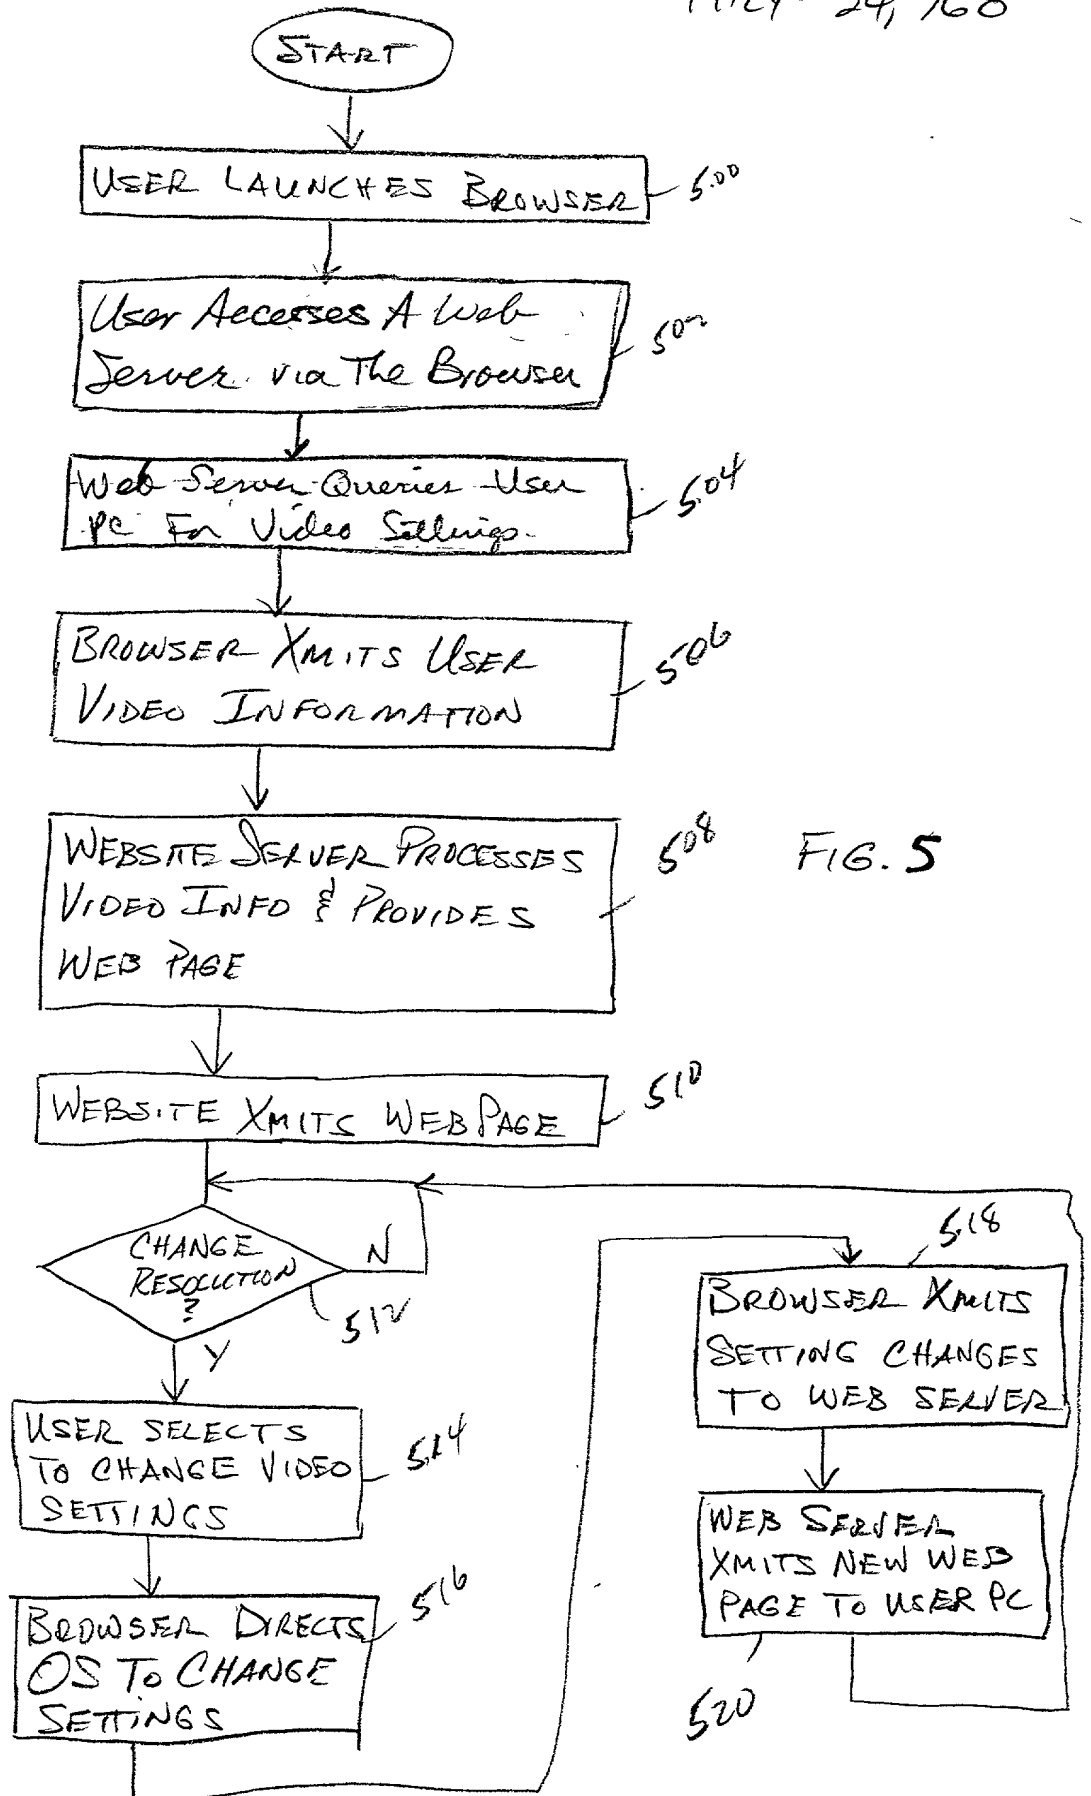 24, 760
START
USER LAUNCHES BROWSER
500
User Accesses A Web
Server via The Browser
502
Web Server Queries User
PC For Video Settings.
504
BROWSER XMITS USER
VIDEO INFORMATION
506
WEBSITE SERVER PROCESSES
VIDEO INFO & PROVIDES
WEB PAGE
508
FIG. 5
WEBSITE XMITS WEB PAGE
510
CHANGE
RESOLUTION
?
N
512
Y
USER SELECTS
TO CHANGE VIDEO
SETTINGS
514
BROWSER DIRECTS
OS TO CHANGE
SETTINGS
516
518
BROWSER XMITS
SETTING CHANGES
TO WEB SERVER
WEB SERVER
XMITS NEW WEB
PAGE TO USER PC
520